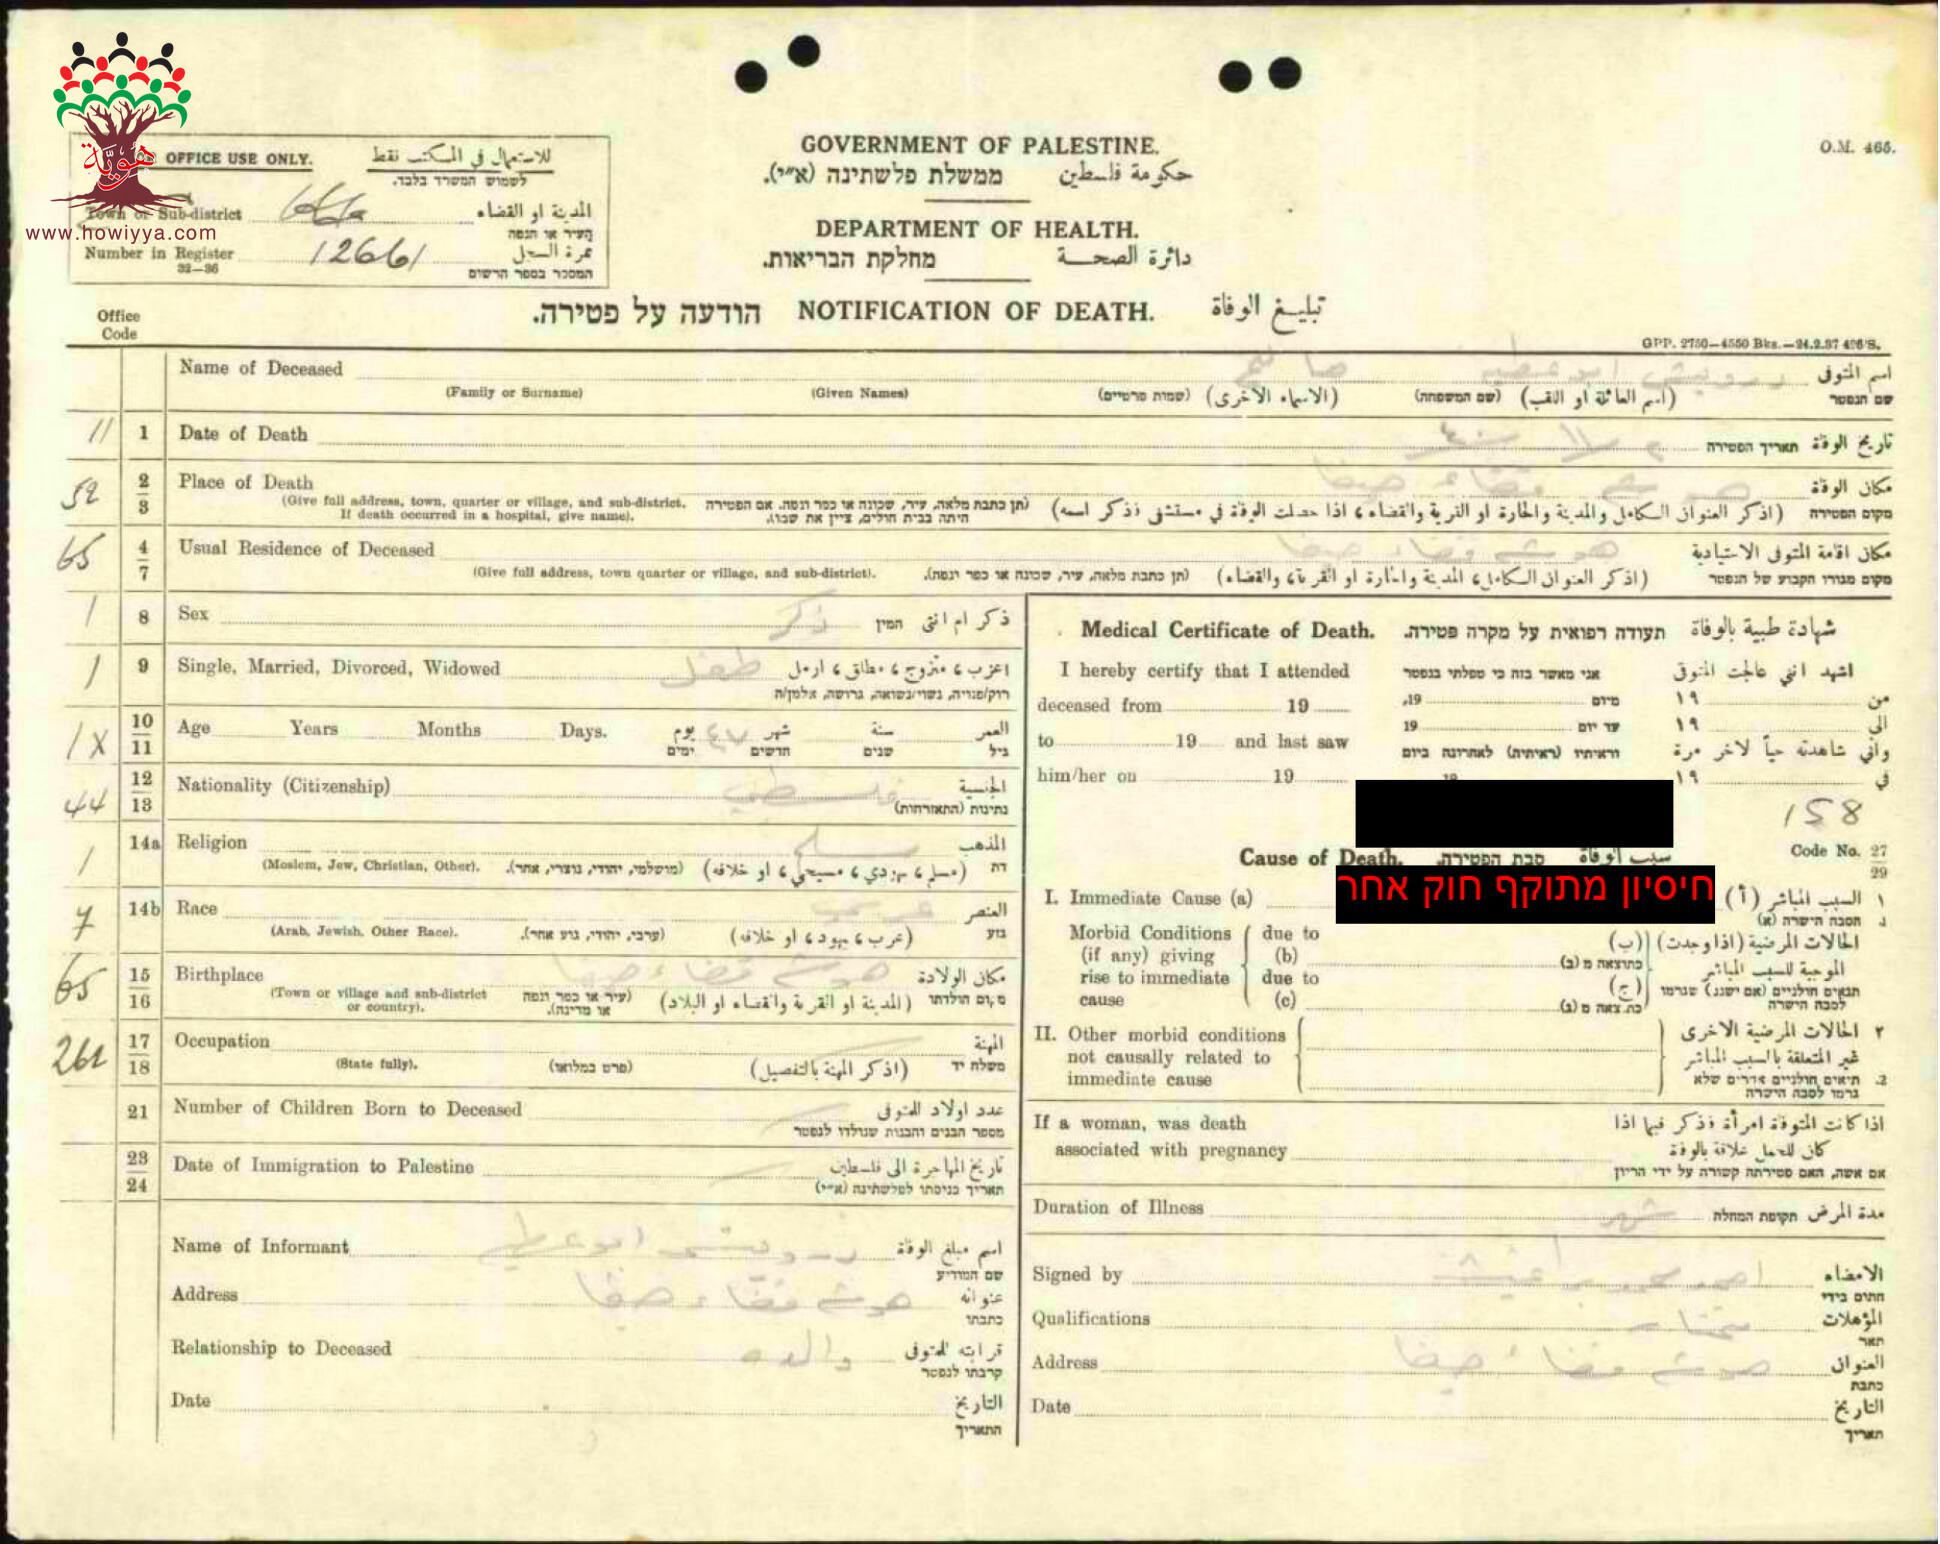 هويّة
www.howiyya.com
OFFICE USE ONLY.
للاستعمال في المكتب فقط
לשמוש המשרד בלבד.
Town or Sub-district
المدينة او القضاء
העיר או הנפה
Number in Register 12661
نمرة السجل
32—36
המספר בספר הרשום
GOVERNMENT OF PALESTINE.
ממשלת פלשתינה (א״י). حكومة فلسطين
DEPARTMENT OF HEALTH.
מחלקת הבריאות. دائرة الصحة
O.M. 465.
הודעה על פטירה. NOTIFICATION OF DEATH. تبليغ الوفاة
Office
Code
GPP. 2750—4550 Bks.—24.2.37 426/S.
Name of Deceased درويش ابو عطيه اسم المتوفى
(Family or Surname) (Given Names) (שמות פרטיים) (الاسماء الاخرى) (שם המשפחה) (اسم العائلة او اللقب) שם הנפטר
11 1 Date of Death תאריך הפטירה تاريخ الوفاة
52 2 3 Place of Death هوشه قضاء حيفا مكان الوفاة
(Give full address, town, quarter or village, and sub-district.
If death occurred in a hospital, give name).
(תן כתבת מלאה, עיר, שכונה או כפר ונפה. אם הפטירה
היתה בבית חולים, ציין את שמו).
(اذكر العنوان الكامل والمدينة والحارة او القرية والقضاء، اذا حصلت الوفاة في مستشفى فذكر اسمه) מקום הפטירה
65 4 7 Usual Residence of Deceased هوشه قضاء حيفا مكان اقامة المتوفى الاعتيادية
(Give full address, town quarter or village, and sub-district). (תן כתבת מלאה, עיר, שכונה או כפר ונפה). (اذكر العنوان الكامل، المدينة والحارة او القرية، والقضاء) מקום מגורו הקבוע של הנפטר
1 8 Sex ذكر המין ذكر ام انثى
1 9 Single, Married, Divorced, Widowed طفل اعزب، متزوج، مطلق، ارمل
רוק/פנויה, נשוי/נשואה, גרושה, אלמן/ה
1X 10 11 Age Years Months Days. ٤٧ يوم شهر سنة العمر
ימים חדשים שנים גיל
44 12 13 Nationality (Citizenship) فلسطيني الجنسية
נתינות (התאזרחות)
1 14a Religion مسلم المذهب
(Moslem, Jew, Christian, Other). (מושלמי, יהודי, נוצרי, אחר). (مسلم، يهودي، مسيحي، او خلافه) דת
7 14b Race عربي العنصر
(Arab, Jewish, Other Race). (ערבי, יהודי, גזע אחר). (عرب، يهود، او خلافه) גזע
65 15 16 Birthplace هوشه قضاء حيفا مكان الولادة
(Town or village and sub-district
or country).
(עיר או כפר ונפה
או מדינה).
(المدينة او القرية والقضاء او البلاد) מקום הולדתו
261 17 18 Occupation المهنة
(State fully). (פרט במלואו) (اذكر المهنة بالتفصيل) משלח יד
21 Number of Children Born to Deceased عدد اولاد المتوفى
מספר הבנים והבנות שנולדו לנפטר
23 24 Date of Immigration to Palestine تاريخ المهاجرة الى فلسطين
תאריך כניסתו לפלשתינה (א״י)
Name of Informant درويش ابو عطيه اسم مبلغ الوفاة
שם המודיע
Address هوشه قضاء حيفا عنوانه
כתבתו
Relationship to Deceased والده قرابته للمتوفى
קרבתו לנפטר
Date التاريخ
התאריך
Medical Certificate of Death. תעודה רפואית על מקרה פטירה. شهادة طبية بالوفاة
I hereby certify that I attended אני מאשר בזה כי טפלתי בנפטר اشهد انني عالجت المتوفى
deceased from 19 מיום 19, من ١٩
to 19 and last saw עד יום 19 الى ١٩
וראיתיו (ראיתיה) לאחרונה ביום واني شاهدته حياً لآخر مرة
him/her on 19 19 في ١٩
158
Cause of Death. סבת הפטירה. سبب الوفاة Code No. 27 29
חיסיון מתוקף חוק אחר
I. Immediate Cause (a) السبب المباشر (أ) ١
הסבה הישרה (א) 1.
Morbid Conditions due to الحالات المرضية (اذا وجدت) (ب)
(if any) giving (b) כתוצאה מ (ב) الموجبة للسبب المباشر
rise to immediate due to (ج) תנאים חולניים (אם ישנם) שגרמו
cause (c) לסבה הישרה
II. Other morbid conditions ٢ الحالات المرضية الاخرى
not causally related to غير المتعلقة بالسبب المباشر
immediate cause 2. תנאים חולניים אחרים שלא
גרמו לסבה הישרה
If a woman, was death اذا كانت المتوفاة امرأة فذكر فيما اذا
associated with pregnancy كان للحمل علاقة بالوفاة
אם אשה, האם פטירתה קשורה על ידי הריון
Duration of Illness شهر תקופת המחלה مدة المرض
Signed by الامضاء
חתום בידי
Qualifications مختار المؤهلات
תאר
Address هوشه قضاء حيفا العنوان
כתבת
Date التاريخ
תאריך